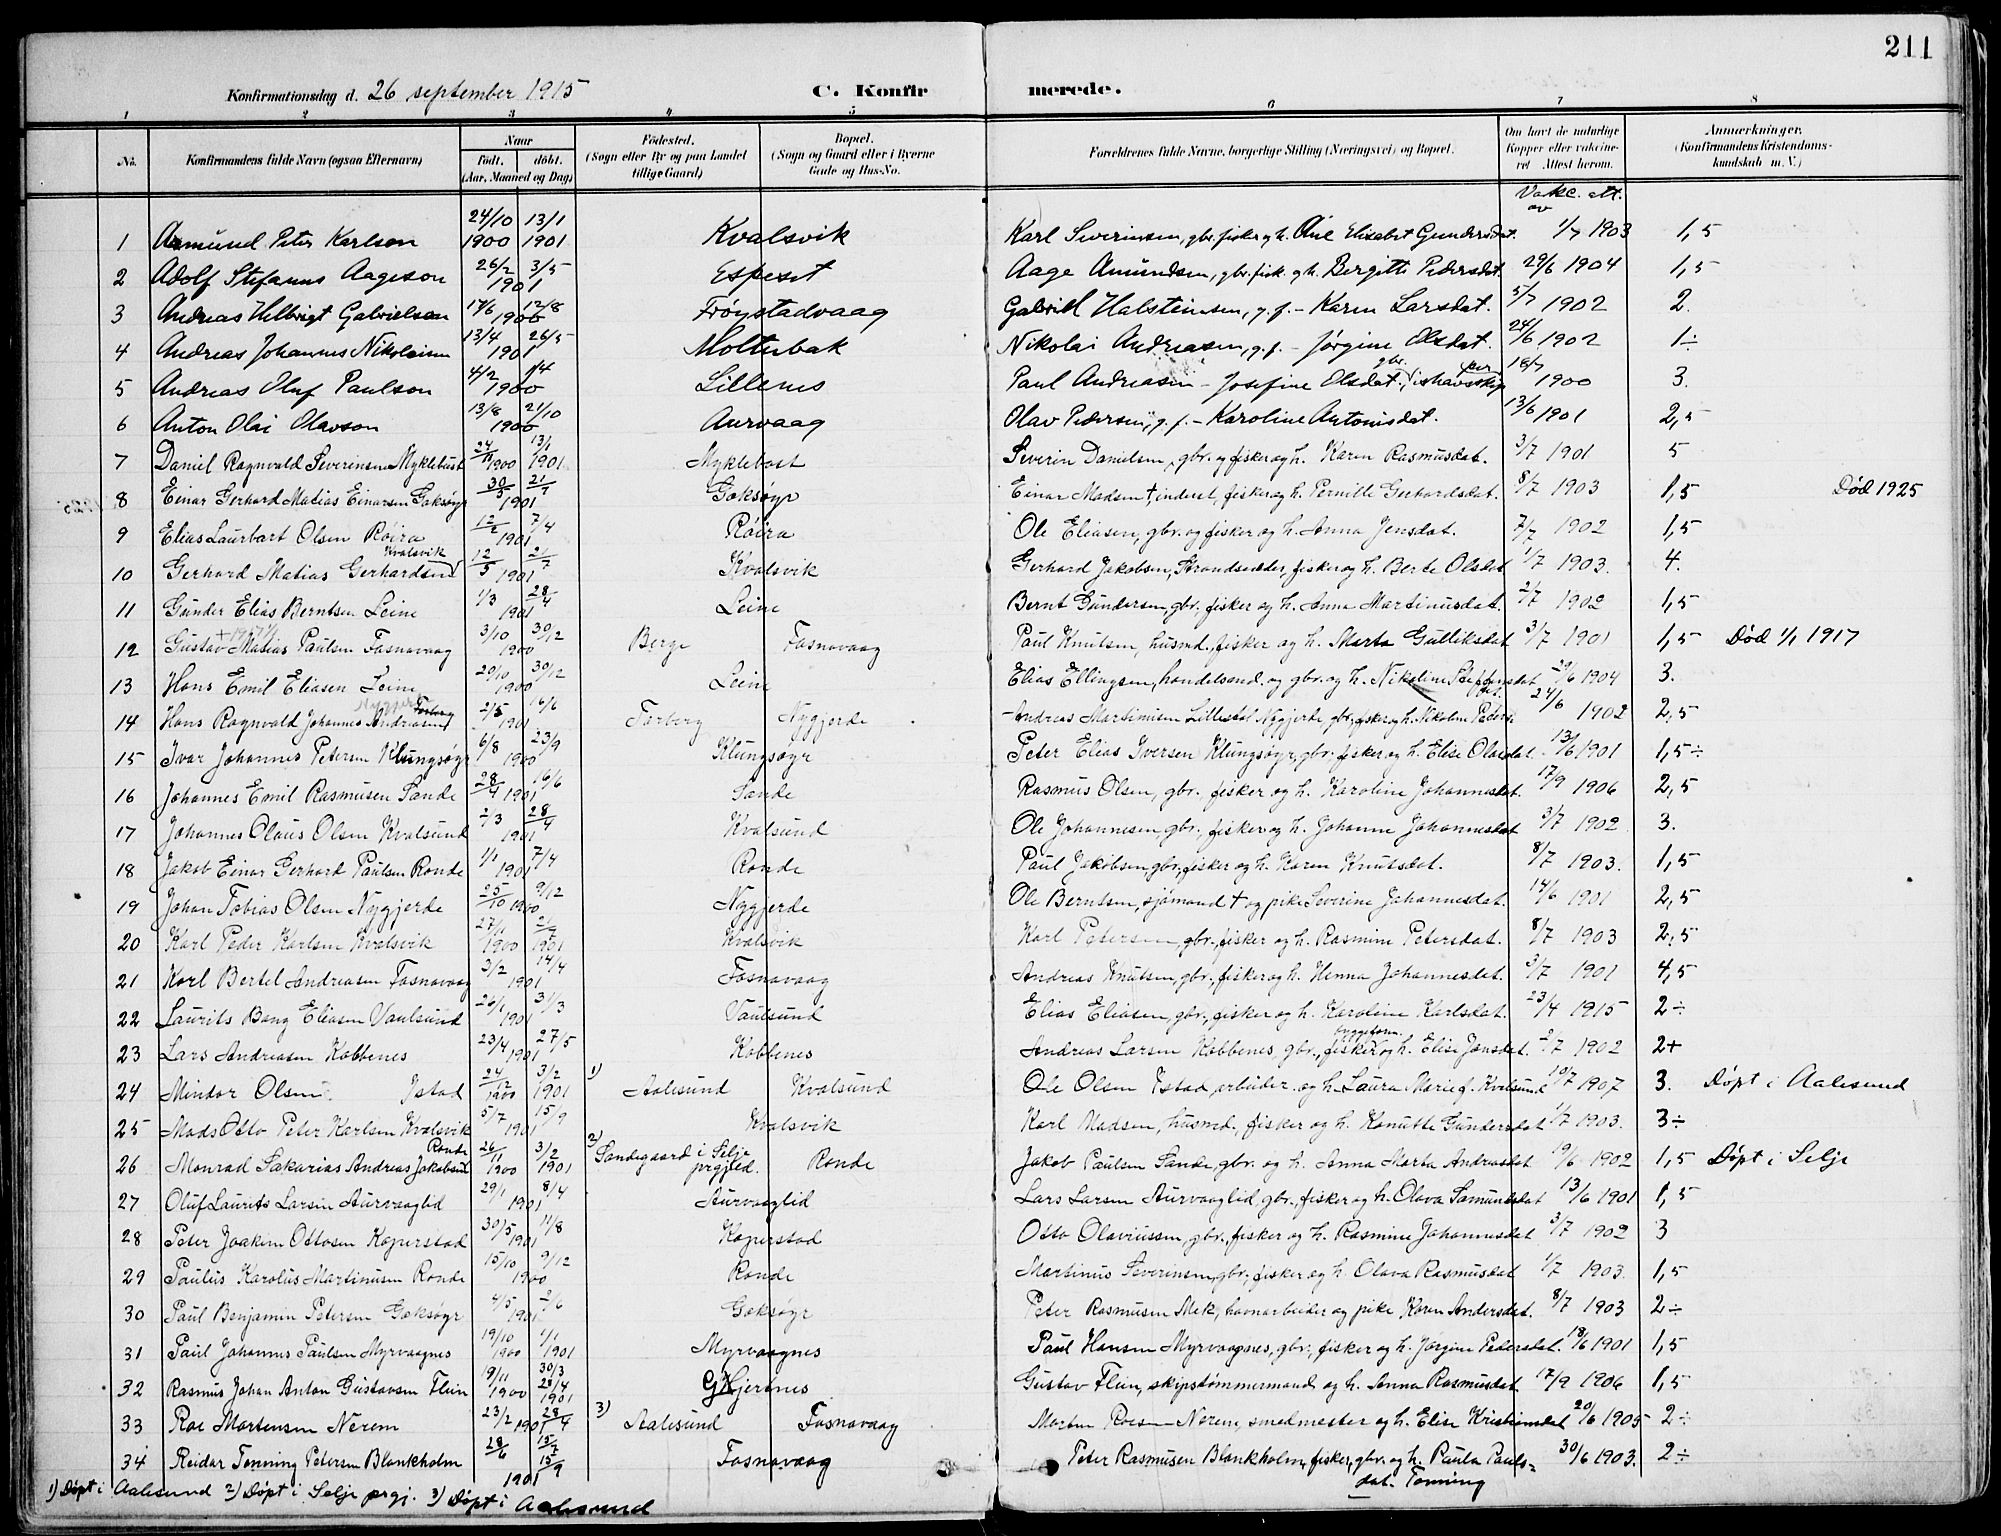 211
Konfirmationsdag d. 26 september 1915 C. Konfirmerede.
1 2 3 4 5 6 7 8
No. Konfirmandens fulde Navn (ogsaa Efternavn) Naar født, døbt. (Aar, Maaned og Dag) Fødested. (Sogn eller By og paa Landet tillige Gaard) Bopæl. (Sogn og Gaard eller i Byerne Gade og Hus-No. Forældrenes fulde Navne, borgerlige Stilling (Næringsvei) og Bopæl. Om havt de naturlige Kopper eller vakcineret Attest herom. Anmærkninger. (Konfirmandens Kristendomskundskab m. V.)
Vakc. att. av
1 Asmund Peter Karlson 24/10 1900 13/1 1901 Kvalsvik Karl Severinsen, gbr. fisker g h. Ane Elisabet Gundersdat. 1/7 1903 1,5
2 Adolf Stefanus Aageson 26/2 3/5 1901 Espeset Aage Amundsen, gbr. fisk. g h. Bergitte Pedersdat. 29/6 1904 1,5
3 Andreas Helbrigt Gabrielson 17/6 12/8 1900 Frøystadvaag Gabriel Halsteinsen, g. f. - Karen Larsdat. 5/7 1902 2.
4 Andreas Johannes Nikolaisen 13/4 26/5 1901 Molterbak Nikolai Andreasen, g. f. - Jørgine Olsdat. 24/6 1902 1÷
5 Andreas Oluf Paulson 4/2 1/4 1900 Lillenes Paul Andreasen - Josefine Olsdat. gbr. ishavsskipper 18/7 1900 3.
6 Anton Olai Olavson 13/8 21/10 1900 Aurvaag Olav Pedersen, g. f. - Karoline Antonisdat. 13/6 1901 2,5
7 Daniel Ragnvald Severinsen Myklebust 24/11 1900 13/1 1901 Myklebost Severin Danielsen, gbr. og fisker og h. Karen Rasmusdat. 3/7 1901 5
8 Einar Gerhard Matias Einarsen Goksøyr 30/5 21/7 1901 Goksøyr Einar Madsen † inderst, fisker og h. Pernille Gerhardsdat. 8/7 1903 1,5 Død 1925
9 Elias Laurbart Olsen Røira 12/2 7/4 1901 Røira Ole Eliasen, gbr. og fisker og h. Anna Jensdat. 7/7 1902 1,5
10 Gerhard Matias Gerhardsen Kvalsvik 12/5 21/7 1901 Kvalsvik Gerhard Jakobsen, Strandsidder, fisker og h. Berte Olsdat 1/7 1903. 4.
11 Gunder Elias Berntsen Leine 1/3 28/4 1901 Leine Bernt Gundersen, gbr. fisker og h. Anna Martinusdat. 2/7 1902 1,5
12 Gustav Matias Paulsen Fosnavaag 3/10 30/12 1900 Berge Fosnavaag Paul Knutsen, husmd., fisker og h. Marta Gulliksdat 3/7 1901 1,5 Død 1/1 1917
13 Hans Emil Eliasen Leine 20/10 30/12 1900 Leine Elias Ellingsen, handelsmd. og gbr. og h. Nikoline Steffensdat. 29/6 1904 3.
14 Hans Ragnvald Johannes Andreasen 2/5 16/6 1901 Torberg Nygjerde Andreas Martinusen Lillestøl Nygjerde, gbr. fisker og h. Nikoline Peders. 24/6 1902 2,5
15 Ivar Johannes Petersen Klungsøyr 6/8 23/9 1900 Klungsøyr Peter Elias Iversen Klungsøyr, gbr. fisker og h. Elise Olsedat. 13/6 1901 1,5÷
16 Johannes Emil Rasmusen Sande 28/4 16/6 1901 Sande Rasmus Olsen, gbr., fisker og h. Karoline Johannesdat. 17/9 1906 2,5
17 Johannes Olaus Olsen Kvalsund 2/3 28/4 1901 Kvalsund Ole Johannesen, gbr., fisker og h. Johanne Johannesdat 3/7 1902 3.
18 Jakob Einar Gerhard Paulsen Ronde 1/1 7/4 1901 Ronde Paul Jakobsen, gbr., fisker og h. Karen Knutsdat. 8/7 1903. 1,5
19 Johan Tobias Olsen Nygjerde 25/10 9/12 1900 Nygjerde Ole Berntsen, sjømand † og pike Severine Johannesdat. 14/6 1901 2,5
20 Karl Peder Karlsen Kvalsvik 27/11 1900 2/2 1901 Kvalsvik Karl Petersen, gbr., fisker og h. Rasmine Petersdat. 8/7 1903 2,5
21 Karl Bertel Andreasen Fosnavaag 3/2 14/4 1901 Fosnavaag Andreas Knutsen, gbr., fisker og h. Henna Johannesdat. 3/7 1901 4,5
22 Laurits Bang Eliasen Vaulsund 26/1 31/3 1901 Vaulsund Elias Eliasen, gbr., fisker og h. Karoline Karlsdat. 23/4 1915 2÷
23 Lars Andreasen Kobbenes 23/4 27/5 1901 Kobbenes Andreas Larsen Kobbenes, gbr., fisker og h. Elise Jonsdat. 2/7 1902 2+
24 Mindor Olsen Ystad 24/12 1900 3/2 1901 1) Aalesund Kvalsund Ole Olsen Ystad, arbeider og h. Laura Marie f. Kvalsund 10/7 1907 3. Døpt i Aalesund
25 Mads Otto Peter Karlsen Kvalsvik 5/7 15/9 1901 Kvalsvik Karl Madsen, husmd., fisker og h. Konutte Gundersdat 1/7 1903. 3÷
26 Monrad Sakarias Andreas Jakobsen Ronde 26/11 1900 3/2 1901 2) Sandegaard i Selje prgjeld. Ronde Jakob Paulsen Sande, gbr. og h. Anna Marta Andreasdat 19/6 1902 1,5 Døpt i Selje
27 Oluf Laurits Larsen Aurvaaglid 29/1 8/4 1901 Aurvaaglid Lars Larsen Aurvaaglid, gbr., fisker og h. Olava Samundsdat 13/6 1901 1,5
28 Peter Joakim Ottosen Koperstad 30/5 11/8 1901 Koperstad Otto Olaviussen, gbr., fisker og h. Rasmine Johannesdat 3/7 1902 3
29 Paulus Karolus Martinusen Ronde 15/10 9/12 1900 Ronde Martinus Severinsen, gbr., fisker og h. Olava Rasmusdat 1/7 1903. 1,5
30 Paul Benjamin Petersen Goksøyr 4/5 2/6 1901 Goksøyr Peter Rasmusen Mek, havnarbeider og pike Karen Andersdat. 8/7 1903 2÷
31 Paul Johannes Paulsen Myrvaagnes 19/10 1900 1/1 1901 Myrvaagnes Paul Hansen Myrvaagnes, gbr., fisker og h. Jørgine Pedersdat. 18/6 1901 1,5
32 Rasmus Johan Anton Gustavsen Flein 19/11 1900 30/3 28/4 1901 Gjertnes Gustav Flein, skipstømmermand og h. Anna Rasmusdat 17/9 1906 1,5
33 Roe Mortensen Nerem 23/2 28/4 1901 3) Aalesund Fosnavaag Morten Roesen Nerem, smedmester og h. Elise Kristiansdat 20/6 1905 2÷
34 Reidar Tønning Petersen Blankholm 28/6 15/9 1901 Fosnavaag Peter Rasmusen Blankholm, fisker, gbr. og h. Paula Paulsdat. Tønning 30/6 1903. 2÷
1) Døpt i Aalesund 2) Døpt i Selje prgj. 3) Døpt i Aalesund